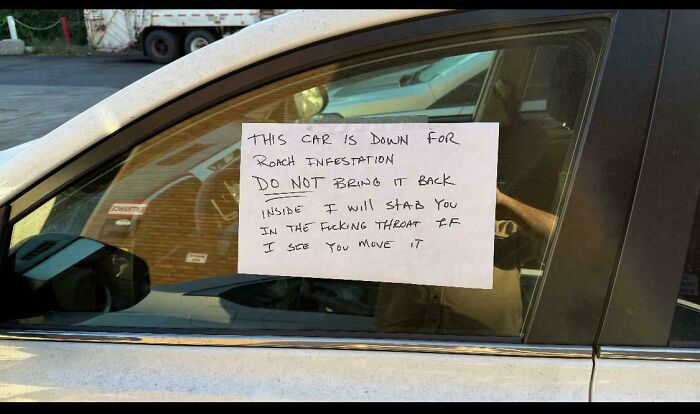 THIS CAR IS DOWN FOR
ROACH INFESTATION
DO NOT BRING IT BACK
INSIDE I WILL STAB YOU
IN THE FUCKING THROAT IF
I SEE YOU MOVE IT